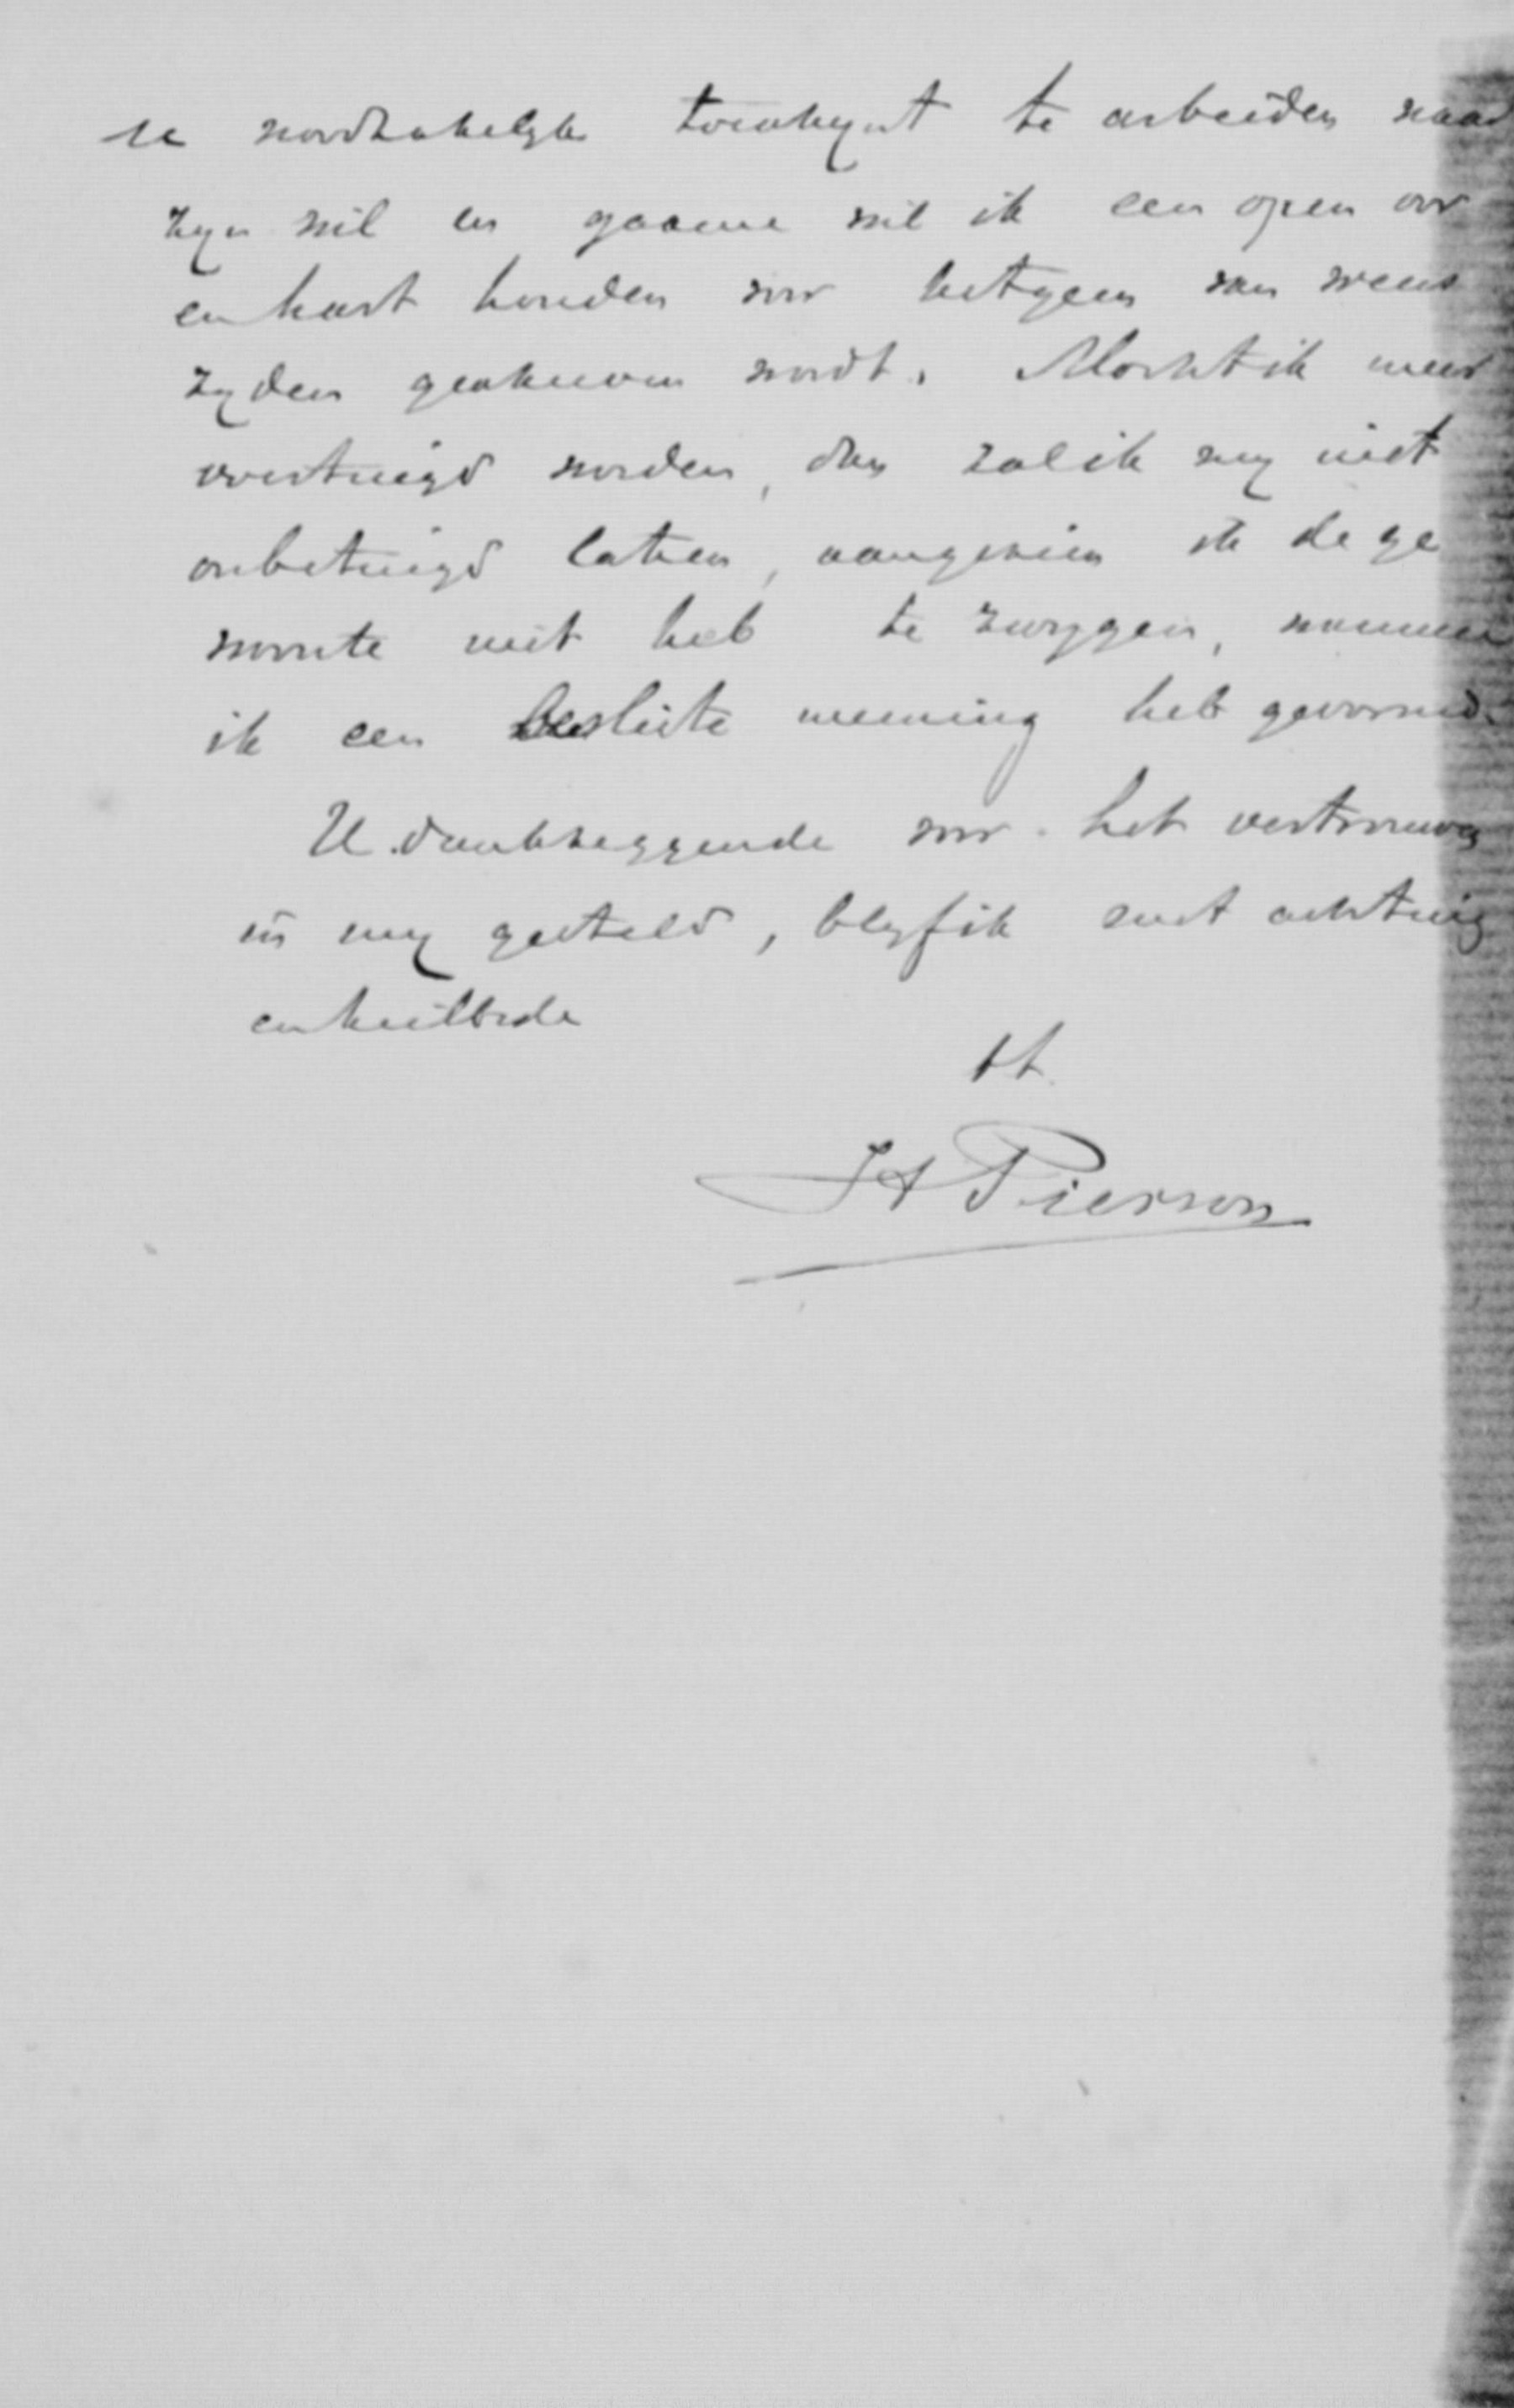 de noodzakelyke toenkynst te arbeiden naar
zyn wil en gaarne wil ik een open oor
en hart houden voor hetgeen van weers
zyden geschreven wordt. Mocht ik meer
overtuigd worden, dan zal ik my niet
onbetuigd laten, aangezien ik de ge
woonte niet heb te zwygen, wanneer
ik een besliste meening heb gevormd.
U dankzeggende voor het vertrouwen
in my gesteld, blyf ik met achting
en heilbede
H Pierson